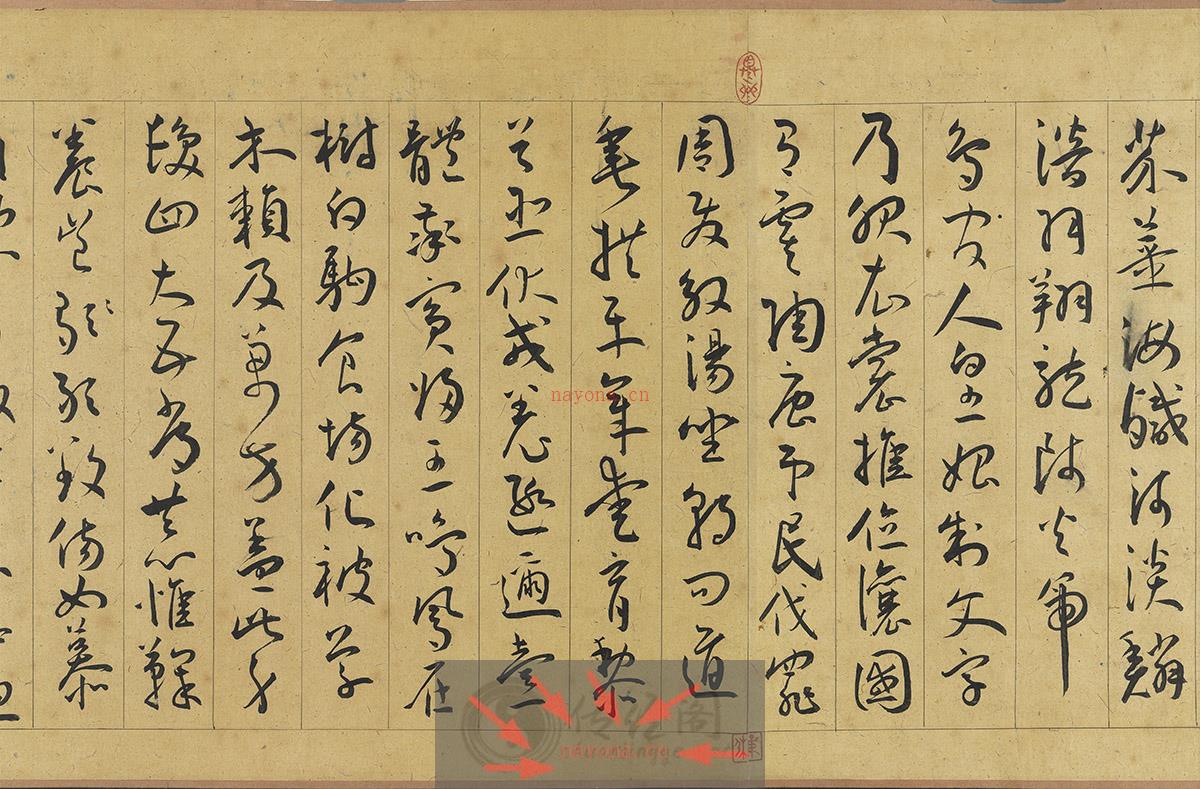 芥薑海鹹河淡鱗
潛羽翔龍師火帝
鳥官人皇始制文字
乃服衣裳推位讓國
有虞陶唐弔民伐罪
周發殷湯坐朝問道
垂拱平章愛育黎
首臣伏戎羌遐邇壹
體率賓歸王鳴鳳在
樹白駒食場化被草
木賴及萬方蓋此身
髮四大五常恭惟鞠
養豈毀敢毀傷女慕
nayong.cn